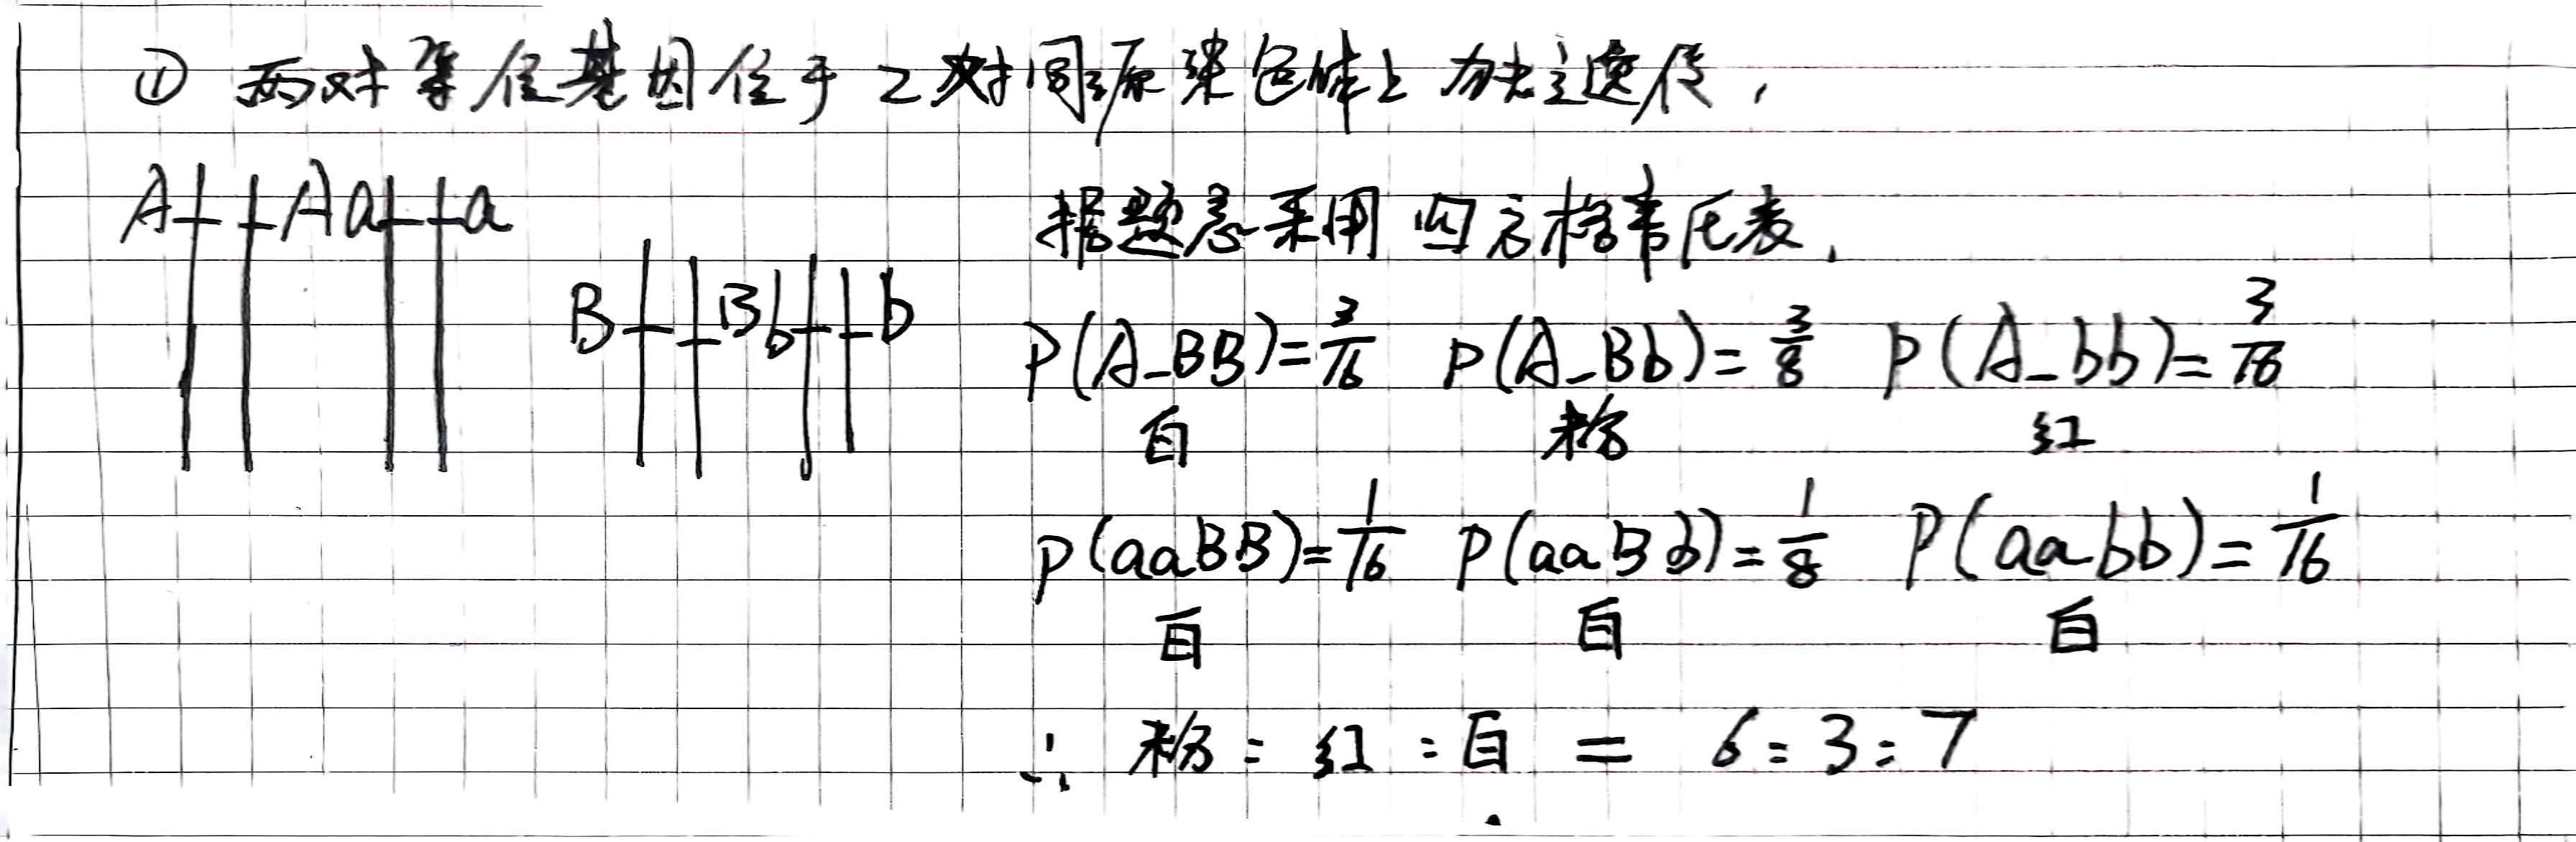 ① 两对等位基因位于2对同源染色体上 为独立遗传,
A A a a
据题意采用 四方格韦氏表,
B B b b
P(A_BB)=3/16 P(A_Bb)=3/8 P(A_bb)=3/16
白 粉 红
P(aaBB)=1/16 P(aaBb)=1/8 P(aabb)=1/16
白 白 白
∴ 粉:红:白 = 6:3:7